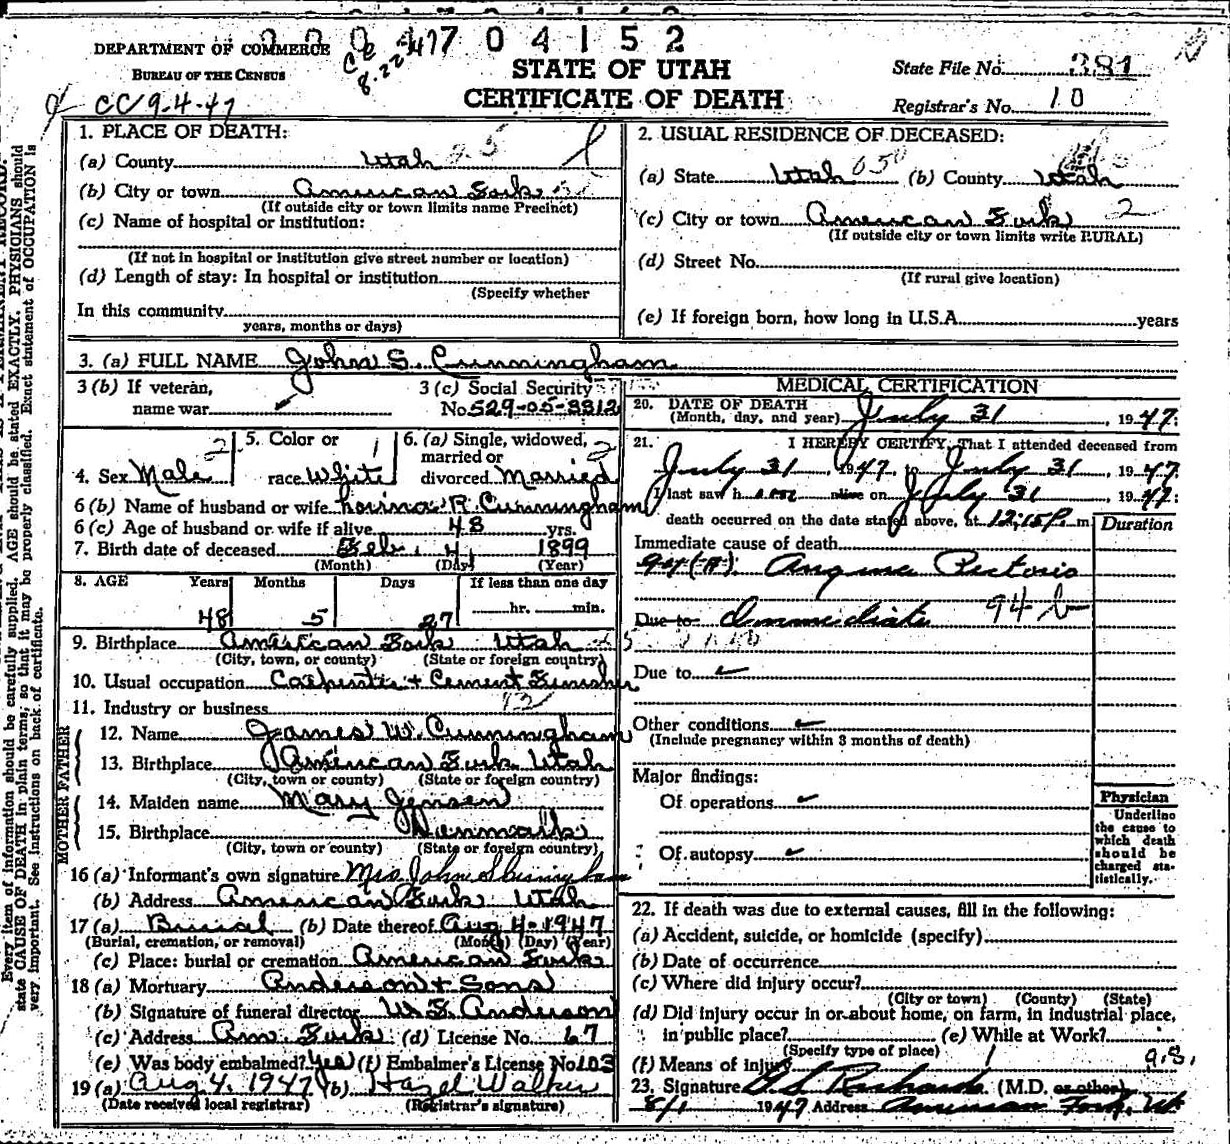 DEPARTMENT OF COMMERCE
BUREAU OF THE CENSUS
04152
STATE OF UTAH
CERTIFICATE OF DEATH
State File No. 381
Registrar's No. 10
CC 9-4-47
8-22-47
Every item of information should be carefully supplied. AGE should be stated EXACTLY. PHYSICIANS should
state CAUSE OF DEATH in plain terms, so that it may be properly classified. Exact statement of OCCUPATION is
very important. See instructions on back of certificate.
1. PLACE OF DEATH:
(a) County Utah 25
(b) City or town American Fork
(If outside city or town limits name Precinct)
(c) Name of hospital or institution:
(If not in hospital or institution give street number or location)
(d) Length of stay: In hospital or institution
(Specify whether
In this community
years, months or days)
2. USUAL RESIDENCE OF DECEASED:
(a) State Utah 050 (b) County Utah
(c) City or town American Fork 2
(If outside city or town limits write RURAL)
(d) Street No.
(If rural give location)
(e) If foreign born, how long in U.S.A. years
3. (a) FULL NAME John S. Cunningham
3 (b) If veteran,
name war
3 (c) Social Security
No. 529-05-3312
4. Sex Male
5. Color or
race White
6. (a) Single, widowed,
married or
divorced Married
6 (b) Name of husband or wife Lovina R. Cunningham
6 (c) Age of husband or wife if alive 48 yrs.
7. Birth date of deceased Feb. 4, 1899
(Month) (Day) (Year)
8. AGE Years Months Days If less than one day
48 5 27 hr. min.
9. Birthplace American Fork Utah
(City, town, or county) (State or foreign country)
10. Usual occupation Carpenter + Cement Finisher
11. Industry or business
FATHER
12. Name James W. Cunningham
13. Birthplace American Fork Utah
(City, town or county) (State or foreign country)
MOTHER
14. Maiden name Mary Jensen
15. Birthplace Denmark
(City, town or county) (State or foreign country)
16 (a) Informant's own signature Mrs John S Cunningham
(b) Address American Fork Utah
17 (a) Burial (b) Date thereof Aug 4-1947
(Burial, cremation, or removal) (Month) (Day) (Year)
(c) Place: burial or cremation American Fork
18 (a) Mortuary Anderson + Sons
(b) Signature of funeral director W. F. Anderson
(c) Address Am. Fork (d) License No. 67
(e) Was body embalmed? Yes (f) Embalmer's License No. 103
19 (a) Aug 4, 1947 (b) Hazel Walker
(Date received local registrar) (Registrar's signature)
MEDICAL CERTIFICATION
20. DATE OF DEATH
(Month, day, and year) July 31, 1947.
21. I HEREBY CERTIFY, That I attended deceased from
July 31, 1947 to July 31, 1947.
I last saw him alive on July 31, 1947.
death occurred on the date stated above, at 12:15 P. m.
Duration
Immediate cause of death
94(A). Angina Pectoris
Due to Immediate 94 b
Due to
Other conditions
(Include pregnancy within 3 months of death)
Major findings:
Of operations
Of autopsy
Physician
Underline
the cause to
which death
should be
charged sta-
tistically.
22. If death was due to external causes, fill in the following:
(a) Accident, suicide, or homicide (specify)
(b) Date of occurrence
(c) Where did injury occur?
(City or town) (County) (State)
(d) Did injury occur in or about home, on farm, in industrial place,
in public place? (e) While at Work?
(Specify type of place)
(f) Means of injury
23. Signature Richards (M.D. or other)
8/1 1947 Address American Fork, Ut